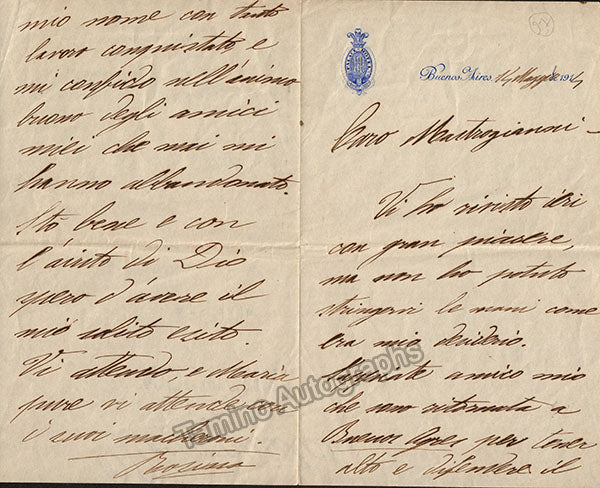 Buenos Aires, 14 Maggio 1914
Caro Mastrogianni -
Vi ho rivisto ieri
con gran piacere,
ma non ho potuto
stringervi le mani come
era mio desiderio.
amico mio
che sono ritornata a
Buenos Ayres per tener
alto e difendere il
mio nome con tanto
lavoro conquistato e
mi confido nell'animo
buono degli amici
miei che mai mi
hanno abbandonato.
Sto bene e con
l'aiuto di Dio
spero d'avere il
mio solito esito.
Vi attendo, e Maria
pure vi attende
i suoi
Rosina
Tamino Autographs